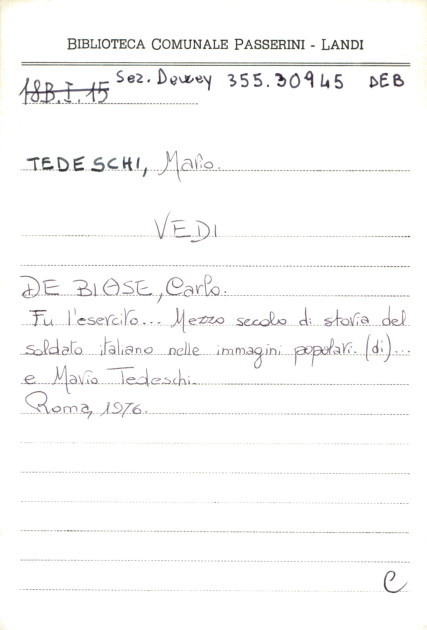 BIBLIOTECA COMUNALE PASSERINI - LANDI
18B.I.15 Sez. Dewey 355.30945 DEB
TEDESCHI, Mario.
VEDI
DE BIASE, Carlo.
Fu l'esercito... Mezzo secolo di storia del
soldato italiano nelle immagini popolari. (di)...
e Mario Tedeschi.
Roma, 1976.
C